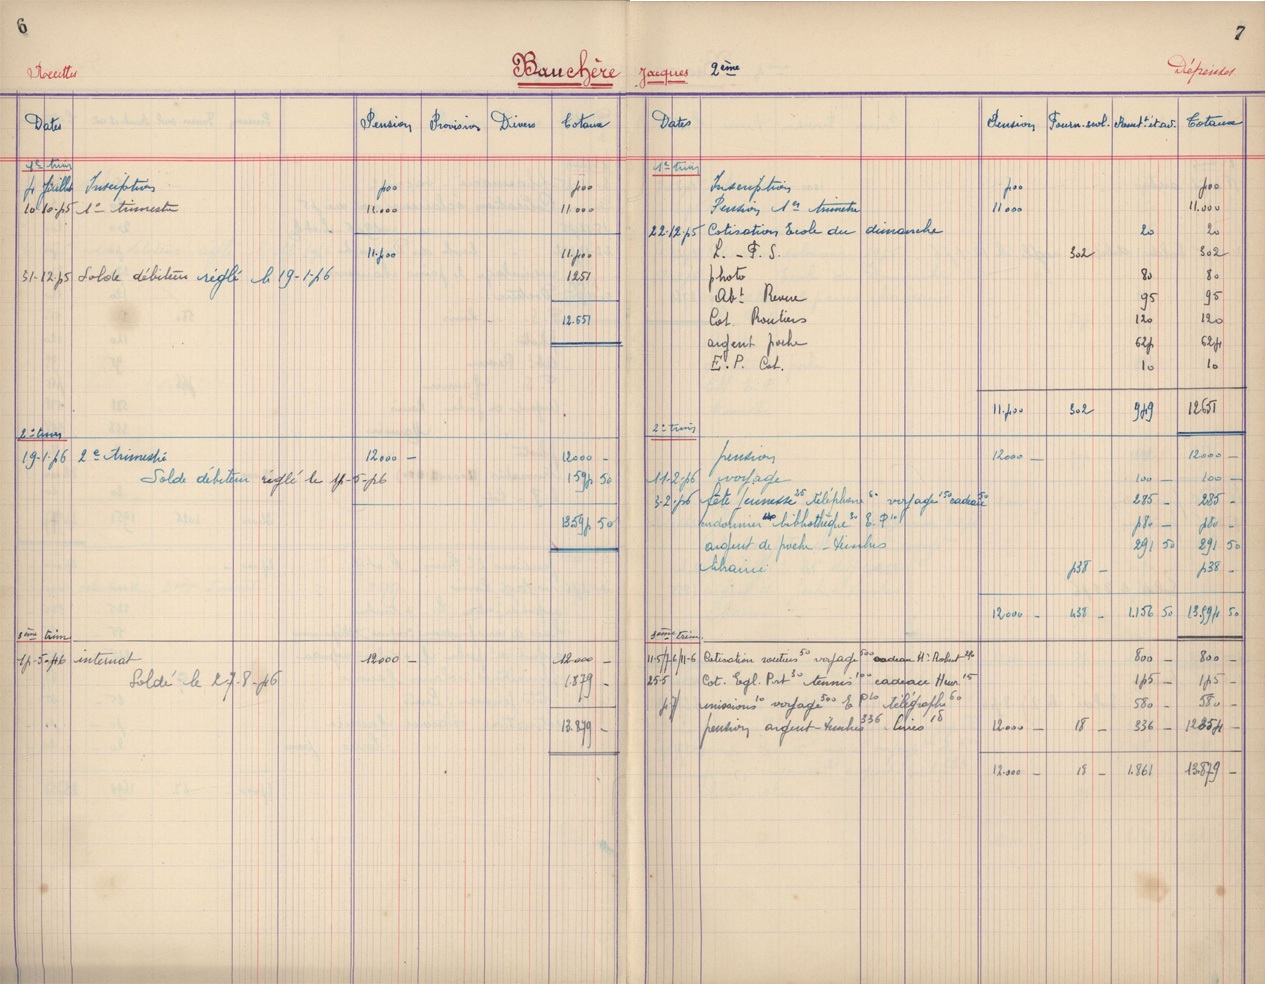 6
Recettes
Bauchère
Dates Pension Provision Divers Totaux
1er trim
4 juillet Inscription 400 400
10-10-45 1er trimestre 11.000 11.000
11.400 11.400
31-12-45 Solde débiteur réglé le 19-1-46 1251
12.651
2e trim
19-1-46 2e trimestre 12000 – 12000 –
Solde débiteur réglé le 14-5-46 1594 50
13594 50
3ème trim
14-5-46 internat 12000 – 12.000 –
Soldé le 27-8-46 1.879 –
13.879 –
7
Jacques 2ème
Dépenses
Dates Pension Fourn. scol. Totaux
1er trim
Inscription 400 400
Pension 1er trimestre 11000 11.000
22-12-45 Cotisation Ecole du dimanche 20 20
L. – F. S. 302 302
photo 80 80
Abt Revue 95 95
Cot. Routiers 120 120
argent poche 624 624
E. P. Cot. 10 10
11.400 302 949 12651
2e trim
pension 12000 – 12000 –
11-2-46 voyage 100 – 100 –
3-2-46 fête jeunesse 25 téléphone 60 voyage 150 cadeau 50 285 – 285 –
cordonnier bibliothèque 30 E. P 10 480 – 480 –
argent de poche – timbres 291 50 291 50
librairie 438 – 438 –
12000 – 438 – 1.156 50 13.594 50
3ème trim.
11-5/7-6/11-6 Cotisation routiers 50 voyage 500 cadeau Mr Robert 250 800 – 800 –
25-5 Cot. Egl. Prot 30 tennis 100 cadeau 15 145 – 145 –
4/7 missions 10 voyage 500 E P 10 télégraphe 60 580 – 580 –
pension argent – timbres 336 livres 18 12000 – 18 – 336 – 12354 –
12.000 – 18 – 1.861 13.879 –